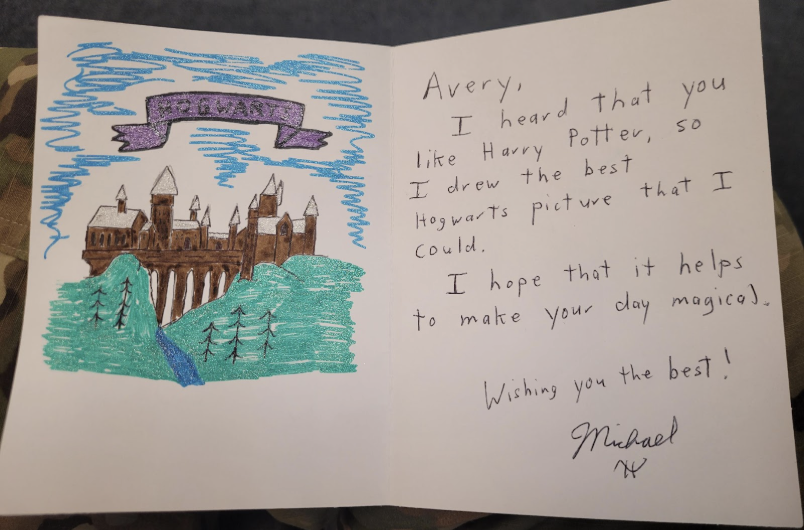 HOGWARTS
Avery,
I heard that you
like Harry Potter, so
I drew the best
Hogwarts picture that I
could.
I hope that it helps
to make your day magical.
Wishing you the best!
Michael